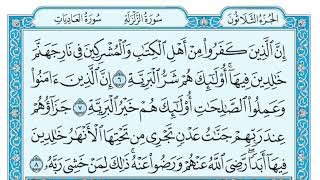 الجزء الثلاثون
سورة الزلزلة
سورة العاديات
إِنَّ ٱلَّذِينَ كَفَرُوا۟ مِنْ أَهْلِ ٱلْكِتَٰبِ وَٱلْمُشْرِكِينَ فِى نَارِ جَهَنَّمَ
خَٰلِدِينَ فِيهَآ ۚ أُو۟لَٰٓئِكَ هُمْ شَرُّ ٱلْبَرِيَّةِ ٦ إِنَّ ٱلَّذِينَ ءَامَنُوا۟
وَعَمِلُوا۟ ٱلصَّٰلِحَٰتِ أُو۟لَٰٓئِكَ هُمْ خَيْرُ ٱلْبَرِيَّةِ ٧ جَزَآؤُهُمْ
عِندَ رَبِّهِمْ جَنَّٰتُ عَدْنٍ تَجْرِى مِن تَحْتِهَا ٱلْأَنْهَٰرُ خَٰلِدِينَ
فِيهَآ أَبَدًا ۖ رَّضِىَ ٱللَّهُ عَنْهُمْ وَرَضُوا۟ عَنْهُ ۚ ذَٰلِكَ لِمَنْ خَشِىَ رَبَّهُۥ ٨